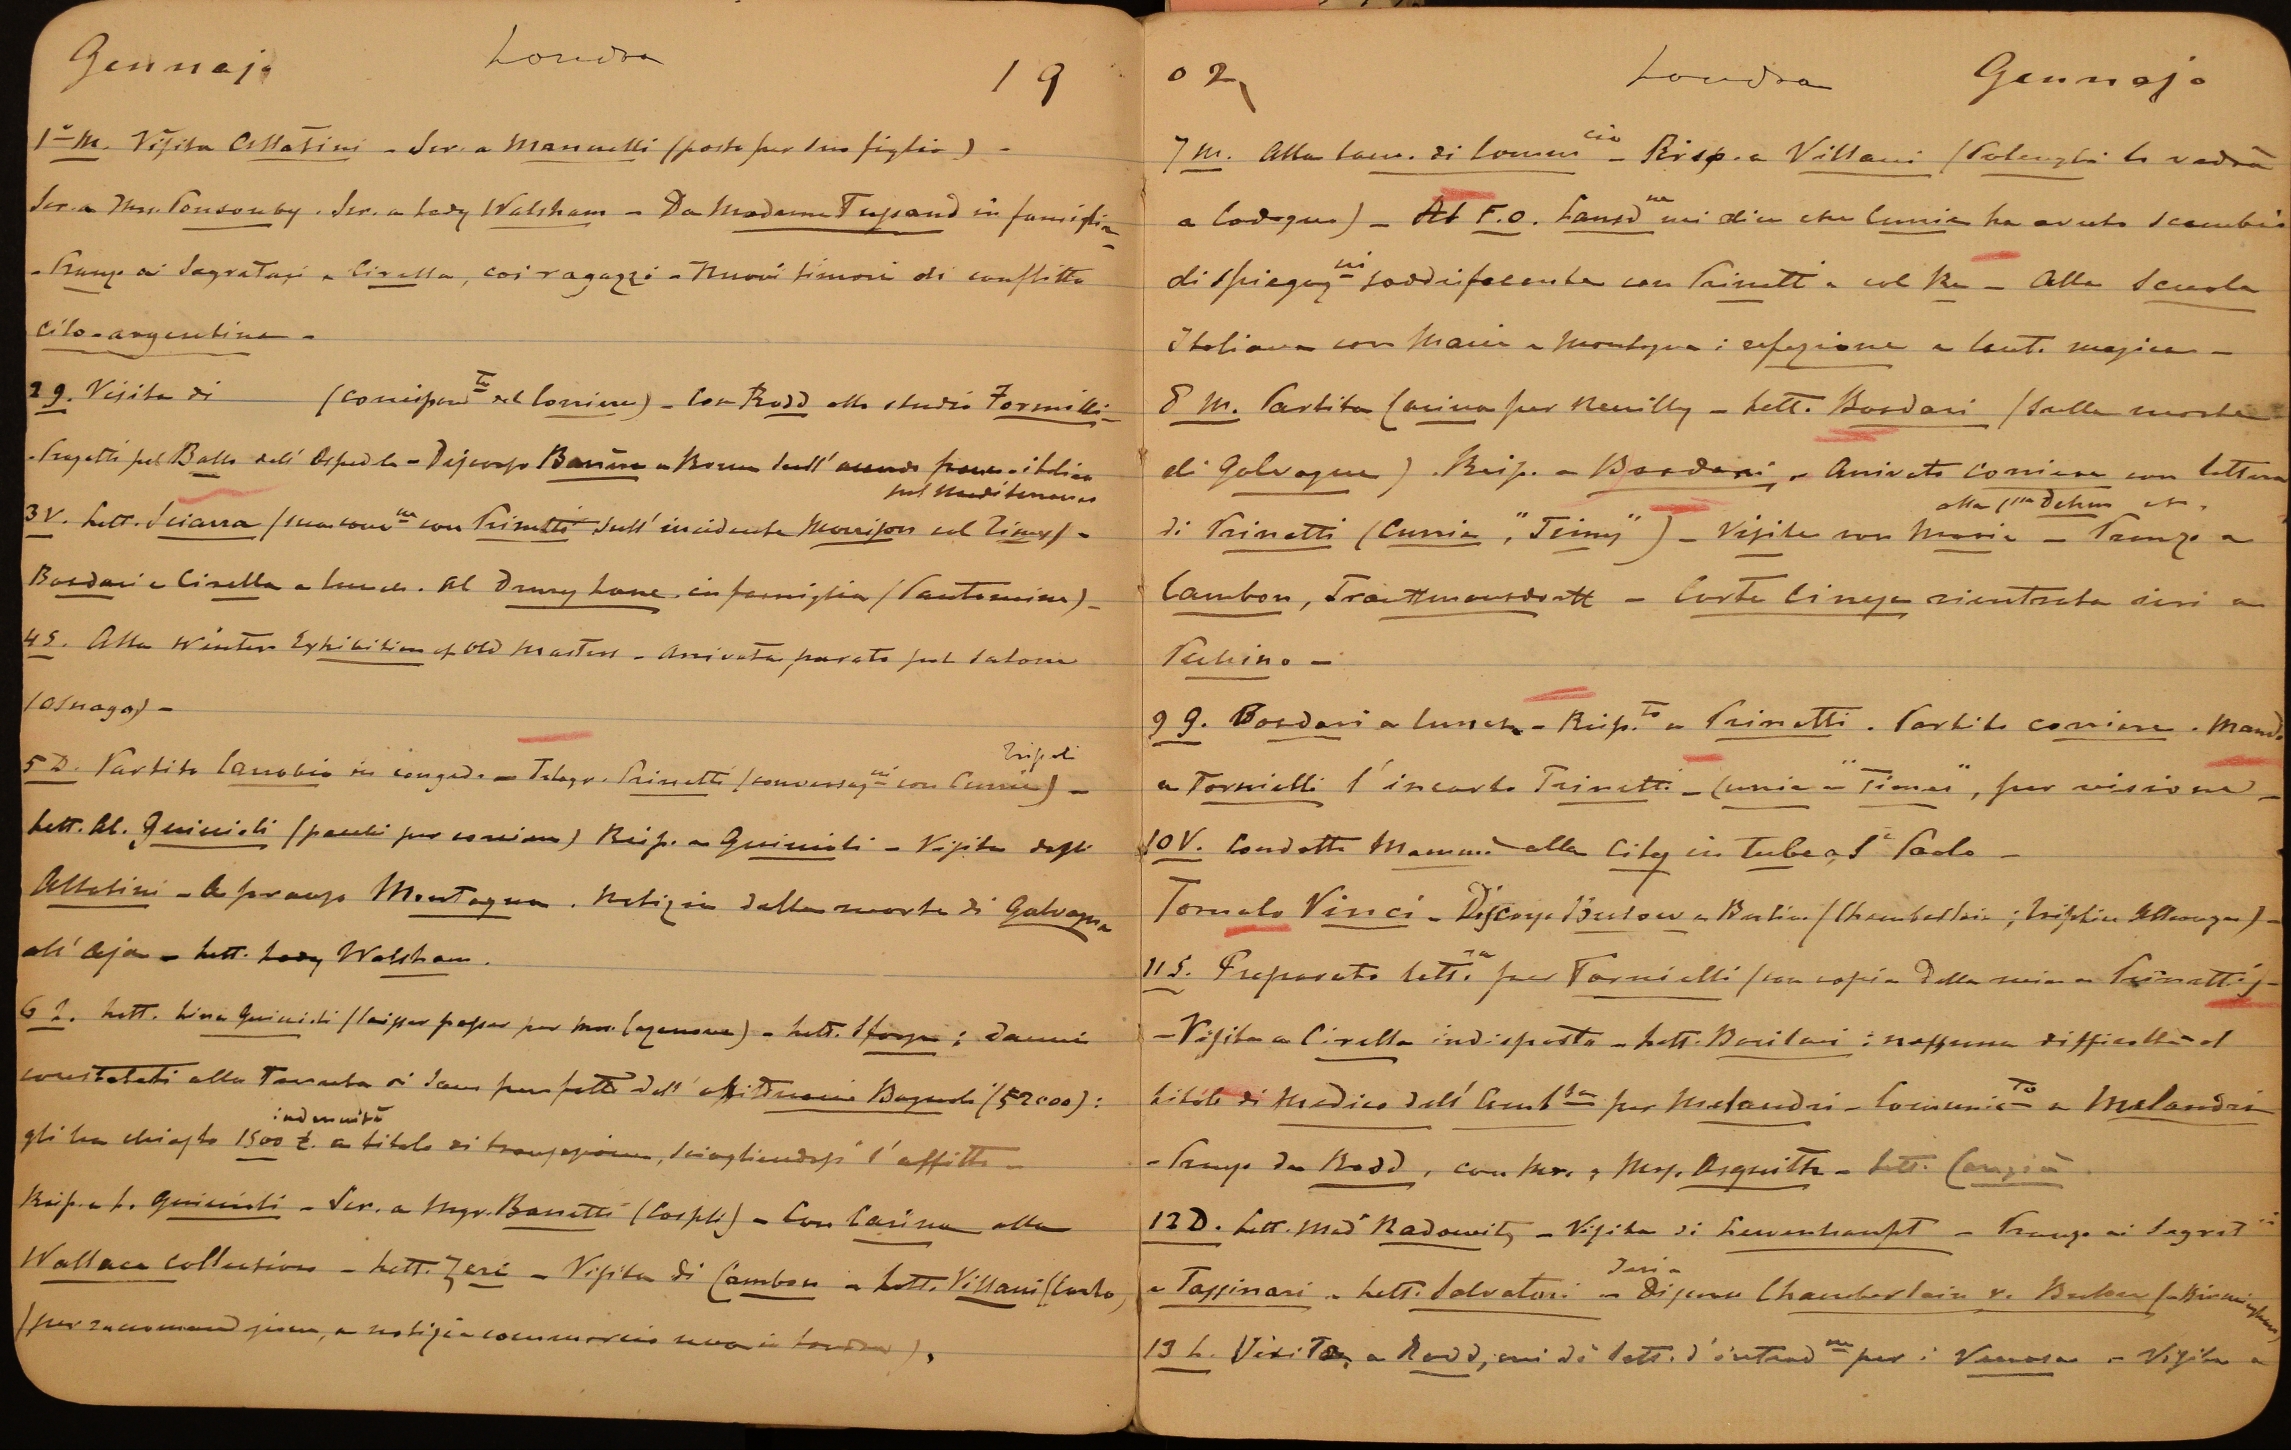 Gennajo Londra 19
1° M. Visita Allatini - Scr. a Mannelli (posto per suo figlio) -
Scr. a Mrs. Ponsonby. Scr. a Lady Walsham - Da Madame Tussaud in famiglia -
- Pranzo ai Segretari e Cirella, coi ragazzi - Nuovi timori di conflitto
cilo-argentino -
2 G. Visita di (corrispond.te del Corriere) - Con Rodd allo studio Formilli -
- Progetti pel Ballo dell'Ospedale - Discorso Barrère a Roma sull'accordo franco-italiano
nel Mediterraneo
3 V. Lett. Sciarra (sua conv.ne con Prinetti sull'incidente Morrison del Times) -
Bosdari e Cirella a lunch. Al Drury Lane in famiglia (Pantomime) -
4 S. Alla Winter Exhibition of Old Masters - Arrivata parato pel salone
(Osnago) -
Tripoli
5 D. Partito Carrobio in congedo - Telegr. Prinetti (conversaz.ni con Currie) -
Lett. Al. Guiccioli (pacchi per corriere) Risp. a Guiccioli - Visita degli
Allatini - A pranzo Montagna. Notizia della morte di Galvagna
all'Aja - Lett. Lady Walsham.
6 L. Lett. Lina Guiccioli (laisser passer per Mrs. ) - Lett. Sforza; danni
constatati alla Tenuta di per fatto dell' Bagnoli (52000):
indennità
gli ha chiesto 1500 £. a titolo di transazione, sciogliendosi l'affitto -
Risp. a L. Guiccioli - Scr. a Mgr. Bonetti (Cospli) - Con Carina alla
Wallace Collection - Lett. Zeri - Visita di Cambon - Lett. Villani (Carlo,
(per raccomandazione, a notizie commercio uova in Londra).
02, Londra Gennajo
7 M. Alla Cam. di Commercio - Risp. a Villani (Polenghi lo vedrà
a Codogno) - Al F.O. Lansd.ne mi dice che Currie ha avuto scambio
di spiegaz.ni soddisfacente con Prinetti e col Re - Alla Scuola
Italiana con Maria e Montagna: refezione e lant. magica -
8 M. Partita Carina per Neuilly - Lett. Bosdari (sulla morte
di Galvagna). Risp. a Bosdari - Arrivato corriere con lettera
alla Dehm etc.
di Prinetti (Currie, "Times") - Visite con Maria - Pranzo a
Cambon, Trauttmansdorff - Corte Cinese rientrata ieri a
Pechino -
9 G. Bosdari a lunch - Risp.to a Prinetti. Partito corriere. Mando
a Tornielli l'incarto Prinetti - Currie - "Times", per visione -
10 V. Condotta Mammà alla City in Tube a S. Paolo -
Tornato Vinci - Discorso Bülow a Berlino (Chamberlain; triplice Alleanza) -
11 S. Preparato lett.ra per Tornielli (con copia della mia a Prinetti) -
- Visita a Cirella indisposto - Lett. Basilari: nessuna difficoltà al
titolo di Medico dell'Amb.ta per Melandri - Comunic.to a Melandri
- Pranzo da Rodd, con Mr. & Mrs. Asquith - Lett.
12 D. Lett. Mad. Radowitz - Visita di Lewenhaupt - Pranzo ai Segret.ii
e Tassinari - Lett. Salvatori - Discorso Chamberlain v. Bülow (a Birmingham)
13 L. Visita a Rodd, mi dà lett. d'introd.ne per i Vanosa - Visita a